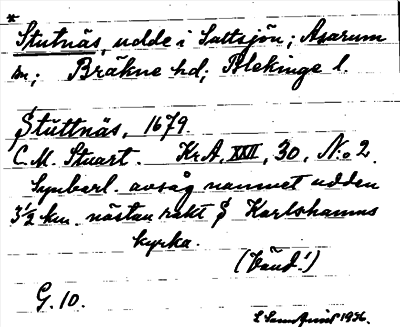 * Stutnäs, udde i Saltsjön; Asarum
sn; Bräkne hd; Blekinge l.
Stuttnäs, 1679.
C. M. Stuart. Kr.A. XXII, 30, No 2.
Synbarl. avsåg namnet udden
3½ km. nästan rakt S Karlshamns
kyrka.
(Bänd!)
G. 10. 1936.